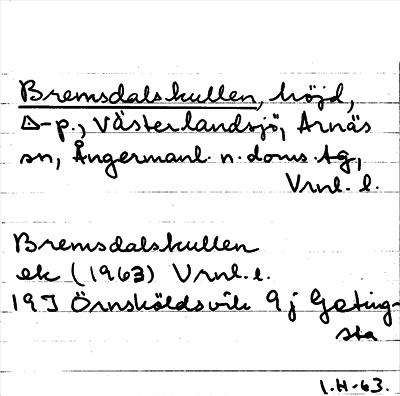 Bremsdalskullen, höjd,
∆-p., Västerlandsjö, Arnäs
sn, Ångermanl. n. doms. tg,
Vrnl. l.
Bremsdalskullen
ek (1963) Vrnl. l.
19J Örnsköldsvik 9j Geting-
sta
I.H-63.